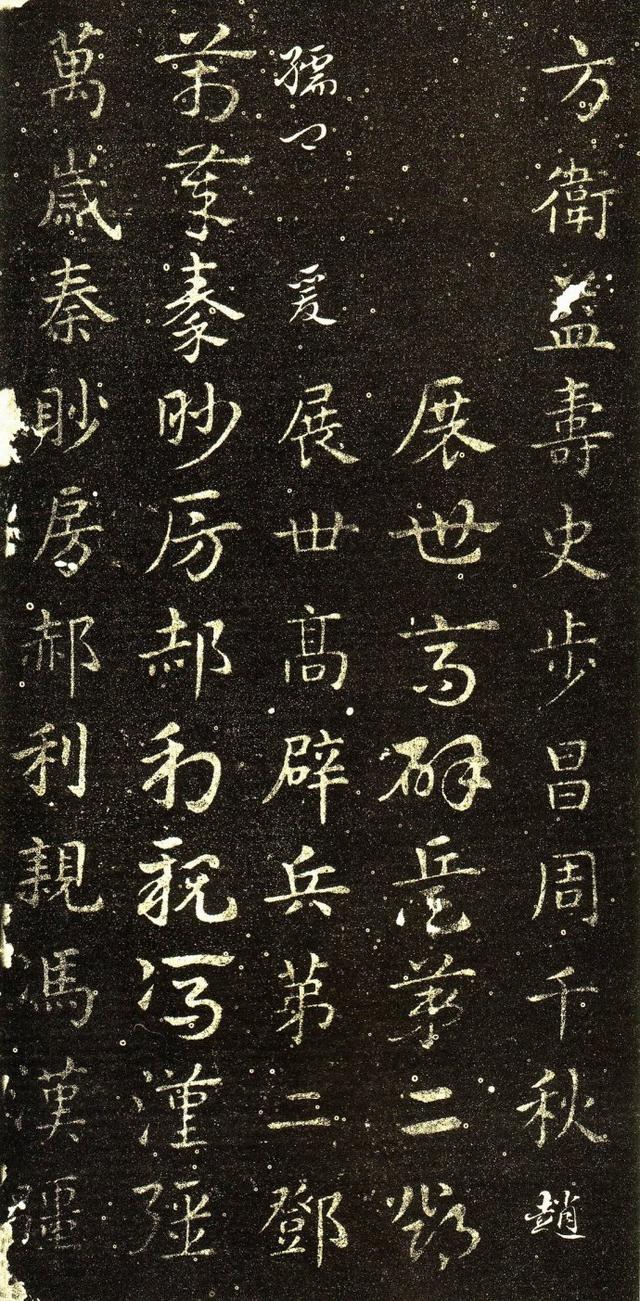 方衛益壽史步昌周千秋趙
展世高辟兵第二鄧
孺卿 爰展世高辟兵第二鄧
萬歲秦眇房郝利親馮漢彊
萬歲秦眇房郝利親馮漢彊